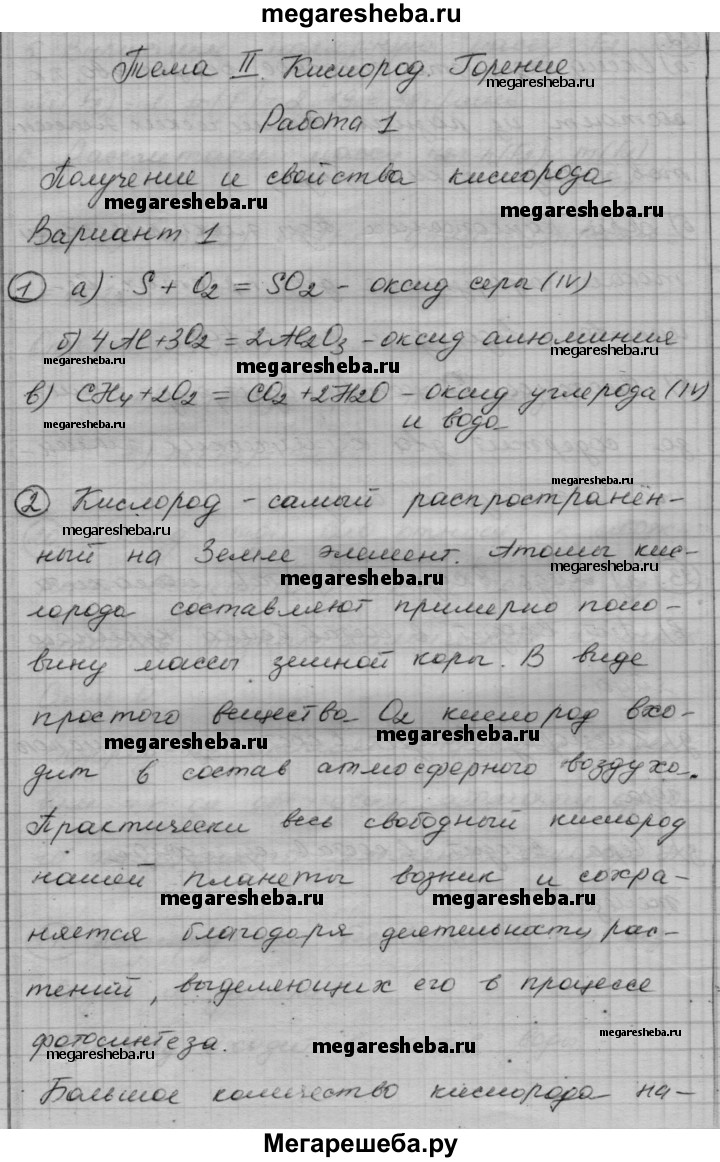 megaresheba.ru
Тема II. Кислород. Горение
megaresheba.ru
Работа 1
Получение и свойства кислорода
megaresheba.ru megaresheba.ru
Вариант 1
1 а) S + O2 = SO2 - оксид серы (IV)
б) 4Al+3O2 = 2Al2O3 - оксид алюминия
megaresheba.ru megaresheba.ru megaresheba.ru
в) CH4+2O2 = CO2+2H2O - оксид углерода (IV)
и вода
megaresheba.ru
2 Кислород - самый распространён-
megaresheba.ru megaresheba.ru
ный на Земле элемент. Атомы кис-
megaresheba.ru megaresheba.ru
лорода составляют примерно поло-
вину массы земной коры. В виде
простого вещества O2 кислород вхо-
megaresheba.ru megaresheba.ru
дит в состав атмосферного воздуха.
Практически весь свободный кислород
нашей планеты возник и сохра-
megaresheba.ru megaresheba.ru
няется благодаря деятельности рас-
тений, выделяющих его в процессе
фотосинтеза.
megaresheba.ru megaresheba.ru megaresheba.ru
Большое количество кислорода на-
Мегарешеба.ру